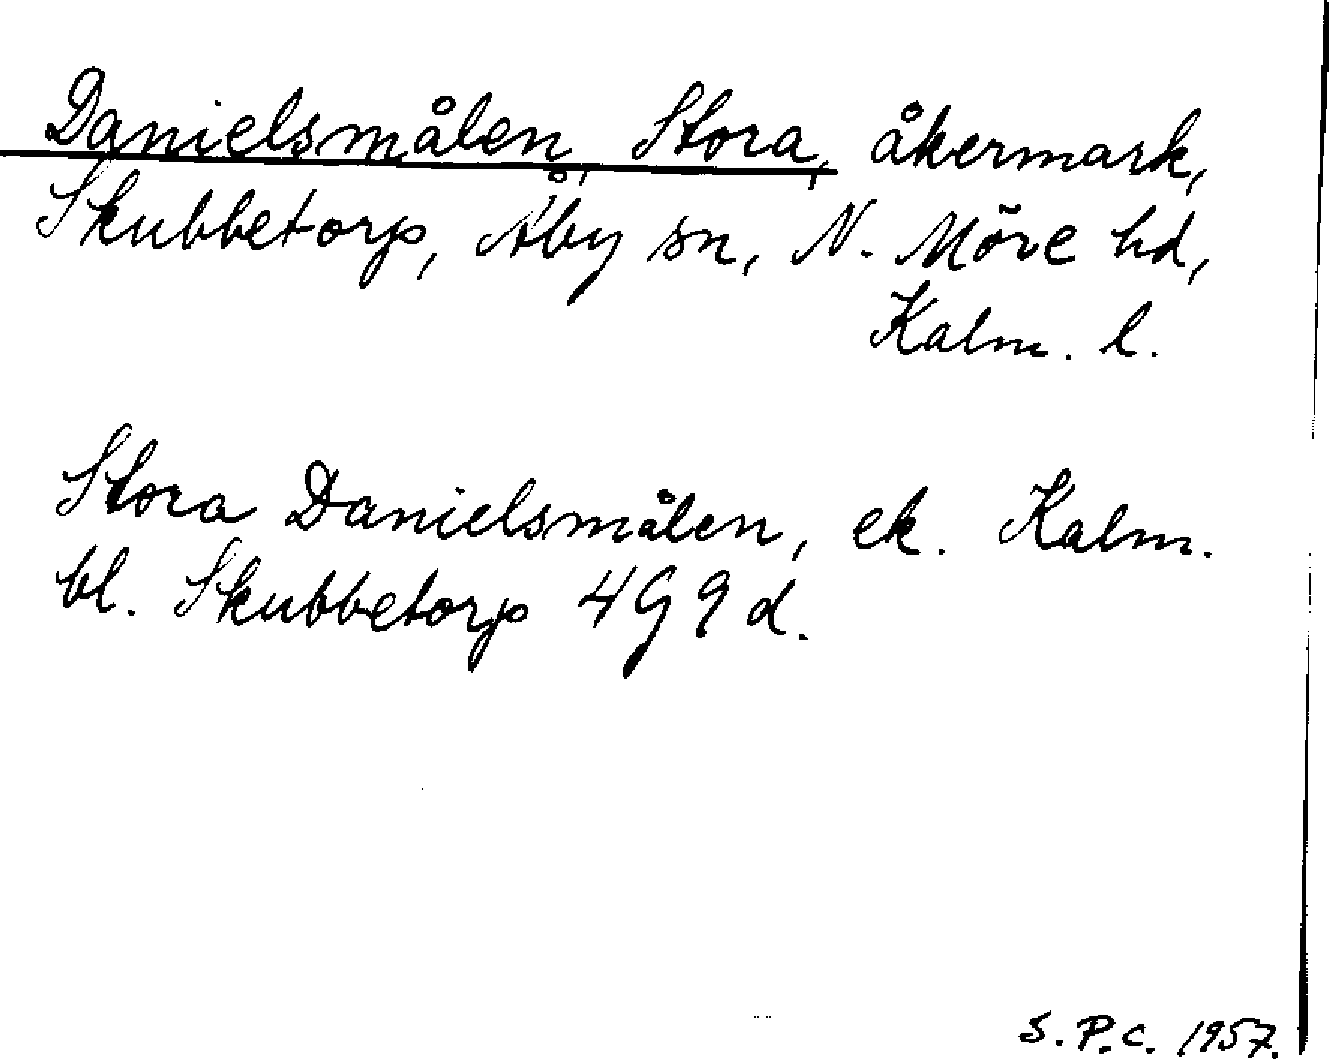 Danielsmålen, Stora, åkermark,
Skubbetorp, Åby sn, N. Möre hd,
Kalm. l.
Stora Danielsmålen, ek. Kalm.
bl. Skubbetorp 4G9d.
S.P.C. 1957.